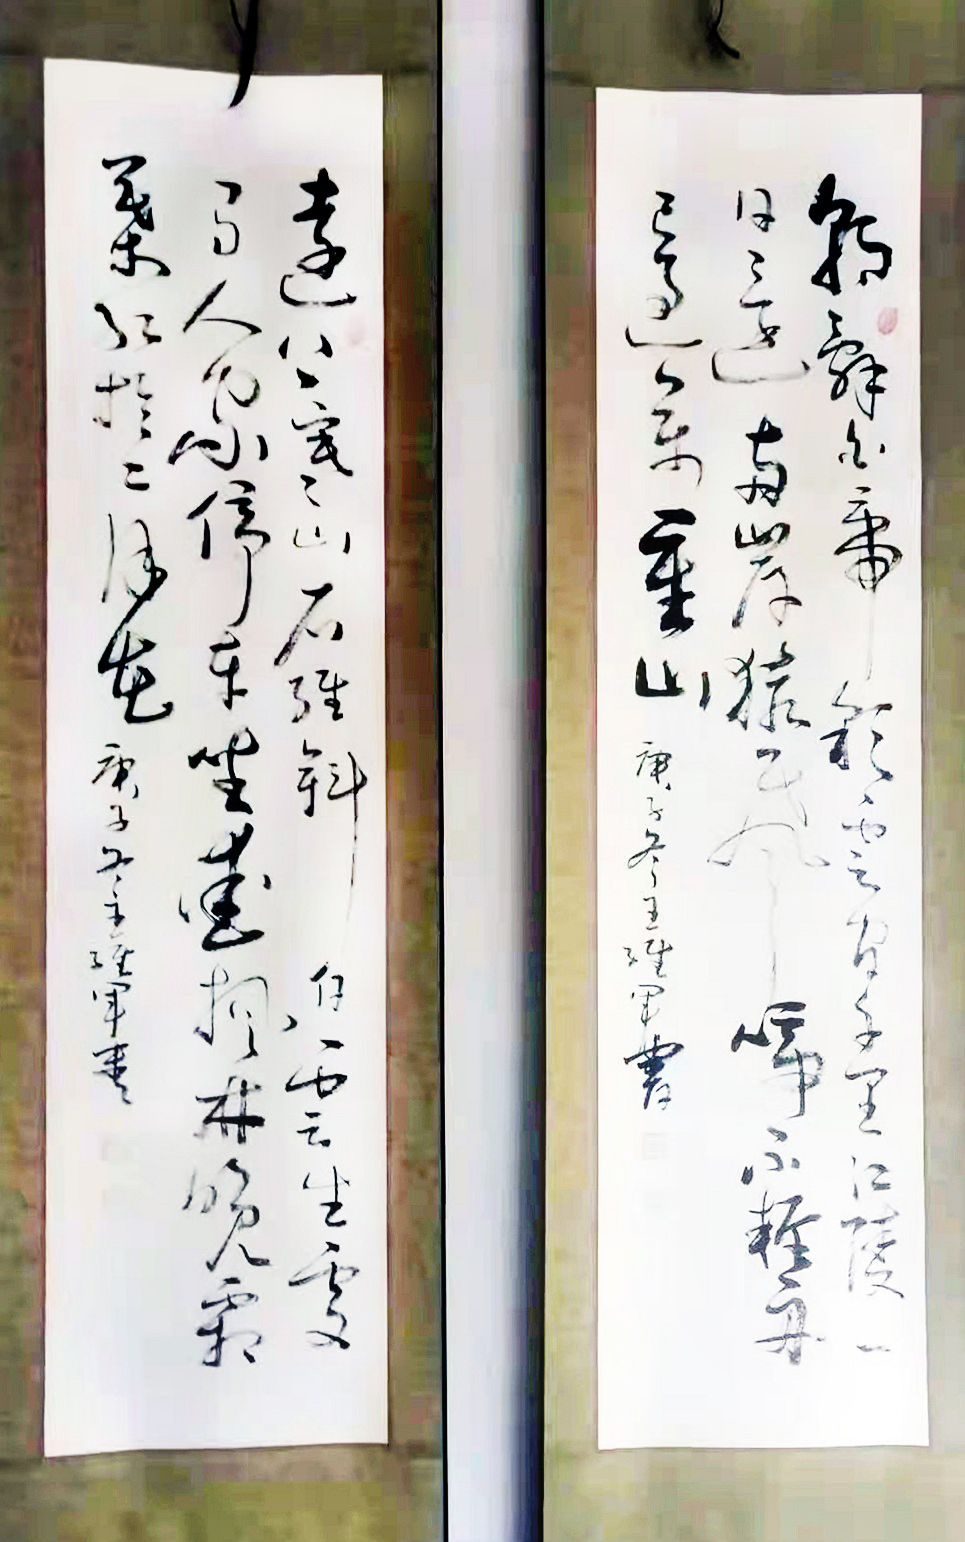 朝辭白帝彩雲間千里江陵一
日還兩岸猿聲啼不輕舟
已過萬重山 庚子冬王維軍書
遠上寒山石徑斜白雲生處
有人家停車坐愛楓林晚霜
葉紅於二月花 庚子冬王維軍書